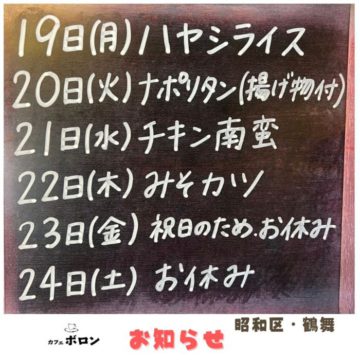 19日(月)ハヤシライス
20日(火)ナポリタン(揚げ物付)
21日(水)チキン南蛮
22日(木)みそカツ
23日(金)祝日のため、お休み
24日(土)お休み
昭和区・鶴舞
カフェ ボロン
お知らせ